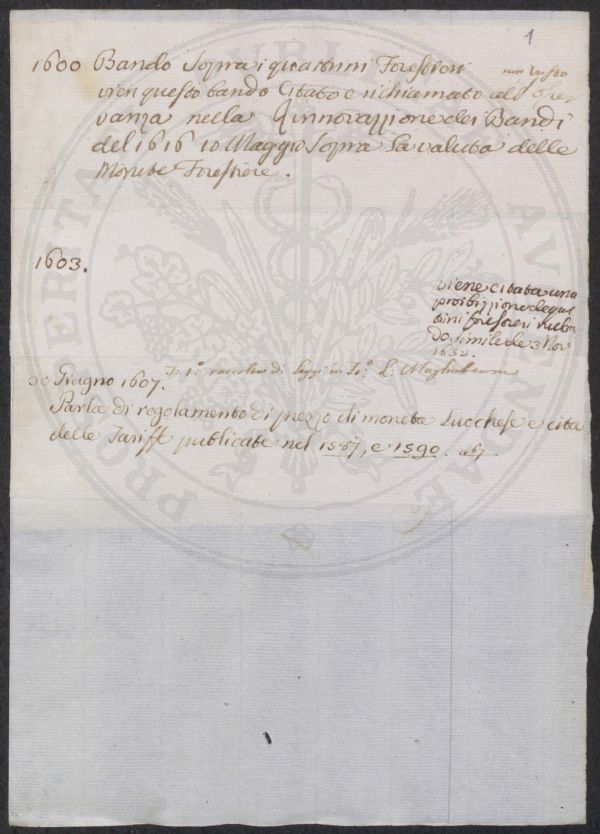 1
1600 Bando Sopra i quattrini Forestieri
vien questo bando Citato e richiamato all'
vanza nella Rinnovazzione dei Bandi
del 1616 10 Maggio Sopra la valuta delle
Monete Forestiere.
1603.
viene citata una
proibizzione de quat
trini forestieri nel ban
do simile de 3 Nov
1652.
30 Giugno 1607. T. 1.º raccolta di Leggi in Fo.º L. Magliabecana
Parla di regolamento di prezzo di moneta Lucchese e cita
delle Tariffe publicate nel 1557, e 1590. a 67
PROSPERITA PUBLICAE AUGENDAE